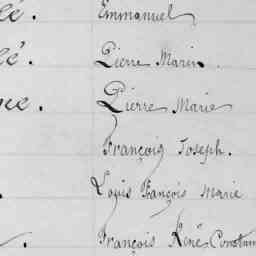 lé. Emmanuel
lé. Pierre Marin.
Pierre Marie
François Joseph.
Louis François Marie
François René